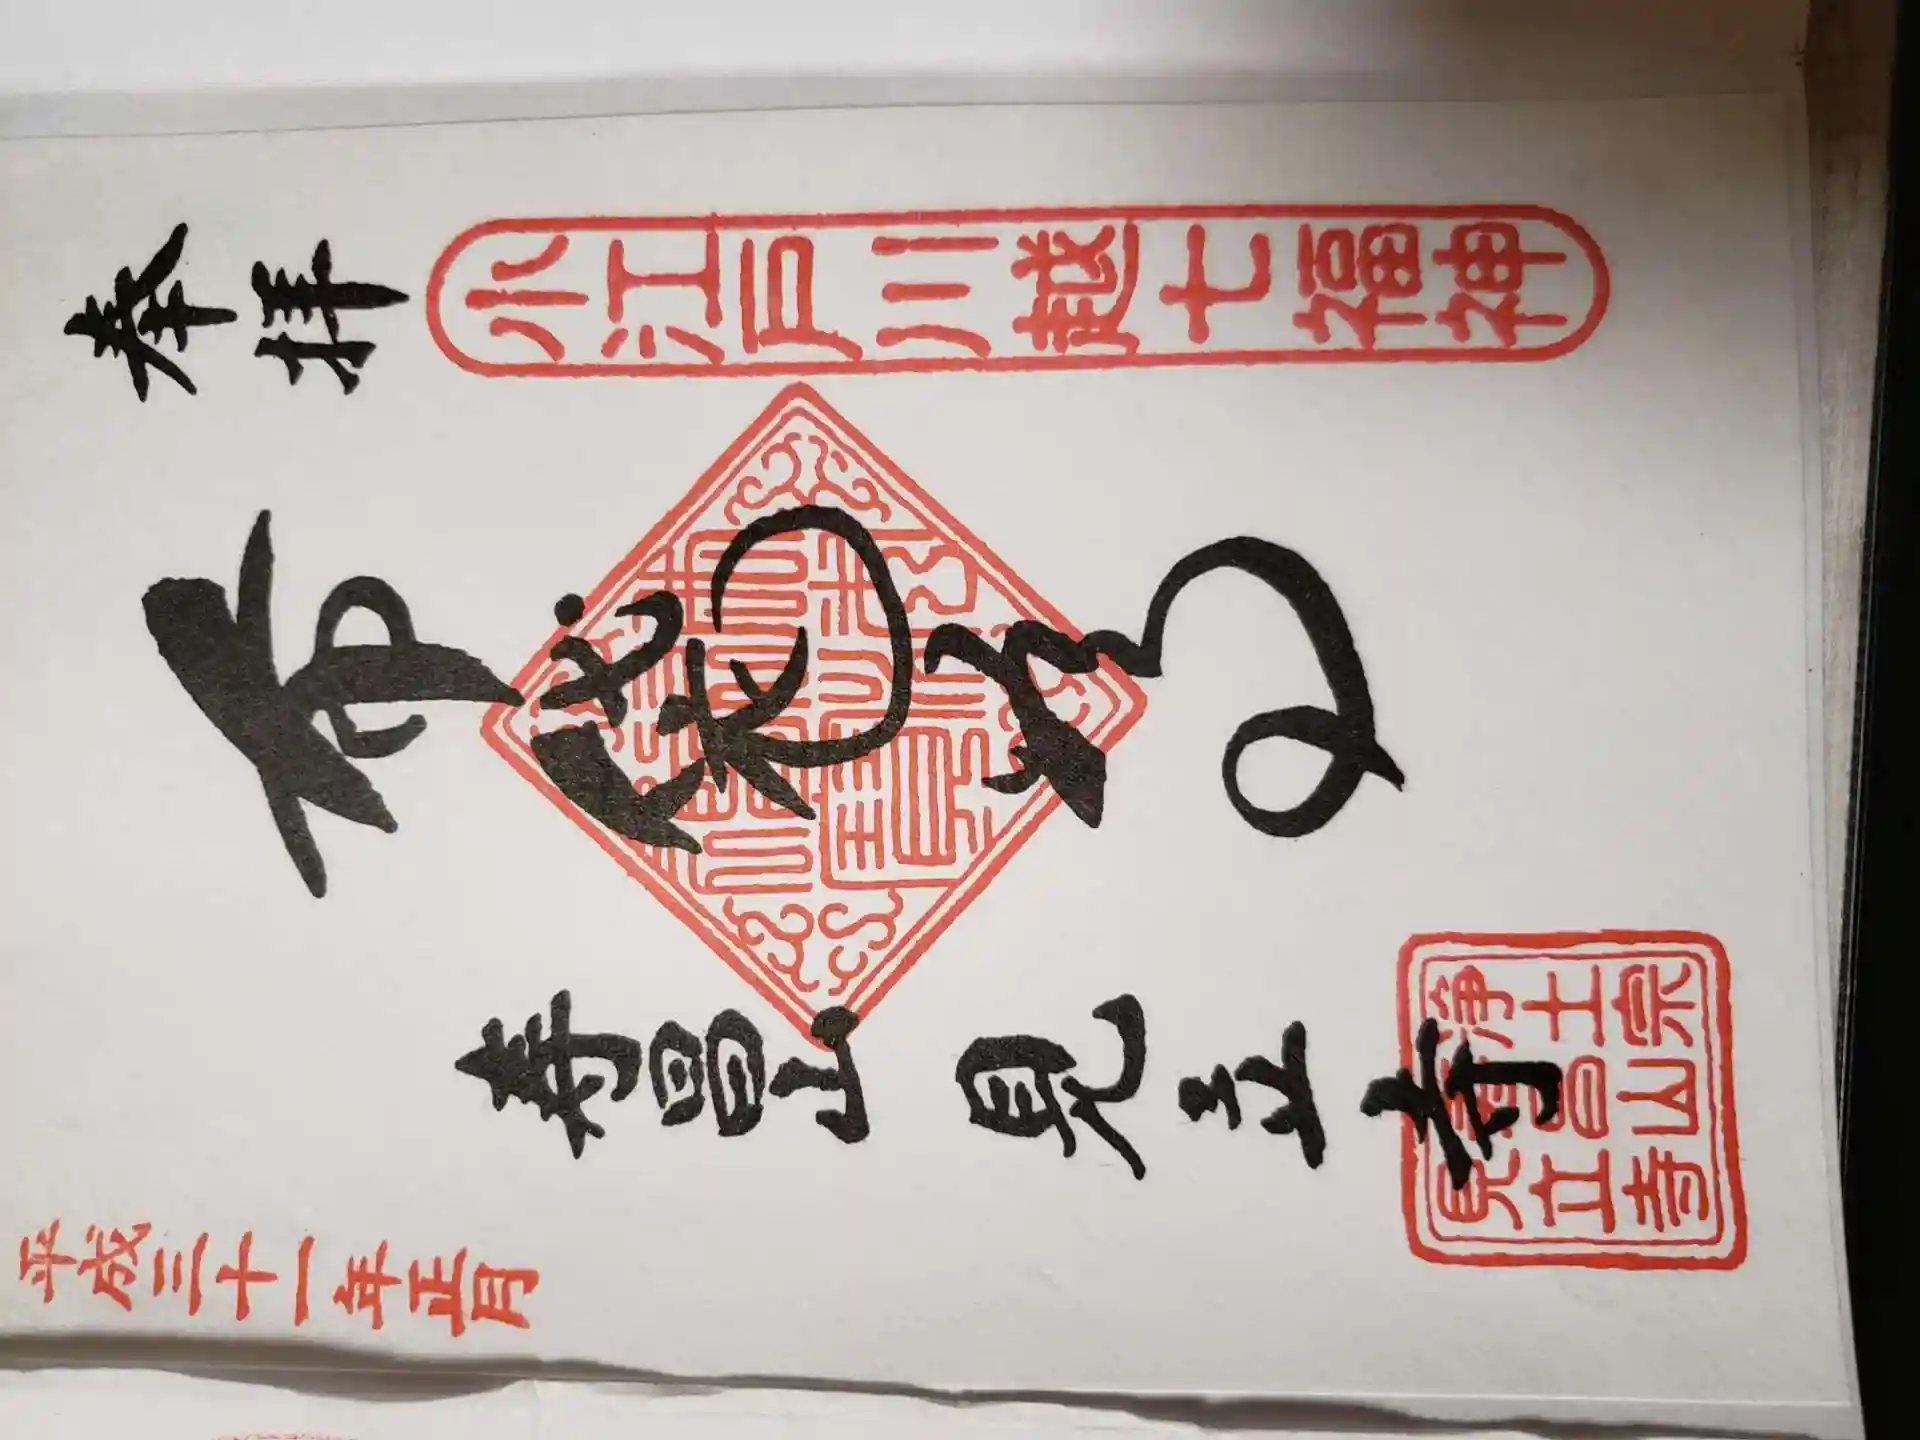 奉拝
小江戸川越七福神
布袋尊
寿昌山
見立寺
浄土宗
寿昌山
見立寺
平成三十一年正月